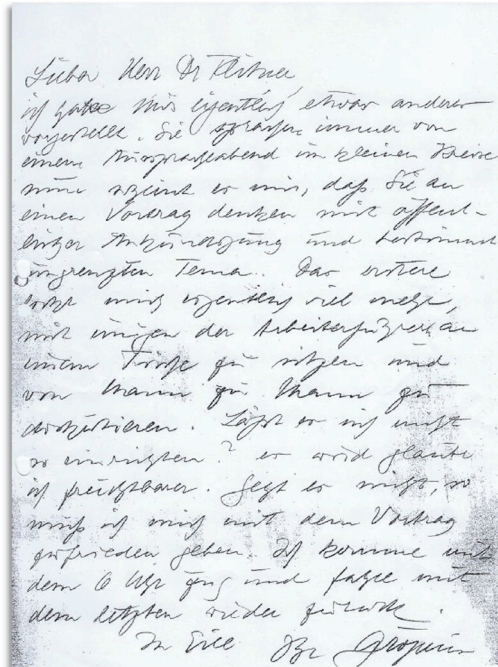 Lieber Herr Dr Flitner,
ich habe mir eigentlich etwas anderes
vorgestellt. Sie sprachen immer von
einem Ausspracheabend im kleinen Kreise
nun scheint es mir, daß Sie an
einen Vortrag denken mit öffent-
licher Ankündigung und bestimmt
umgrenzten Tema. Das erstere
lockt mich eigentlich viel mehr,
mit einigen der Arbeiterführer an
einem Tische zu sitzen und
von Mann zu Mann zu
diskutieren. Läßt es sich nicht
so einrichten? es wird glaube
ich fruchtbarer. Geht es nicht, so
muß ich mich mit dem Vortrag
zufrieden geben. Ich komme mit
dem 6 Uhr Zug und fahre mit
dem letzten wieder zurück.
In Eile Ihr Gropius